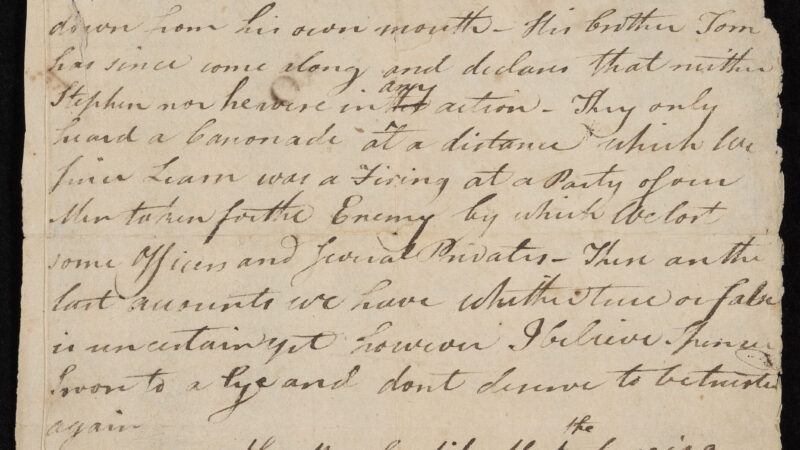 down from his own mouth - His brother Tom
has since come along and declares that neither
Stephen nor he were in any action - They only
heard a Canonade at a distance which We
since Learn was a Firing at a Party of our
Men taken for the Enemy by which We lost
some Officers and several Privates - These are the
last accounts we have whither true or false
is uncertain yet however I believe Spencer
Swore to a Lye and dont deserve to be trusted
again
the